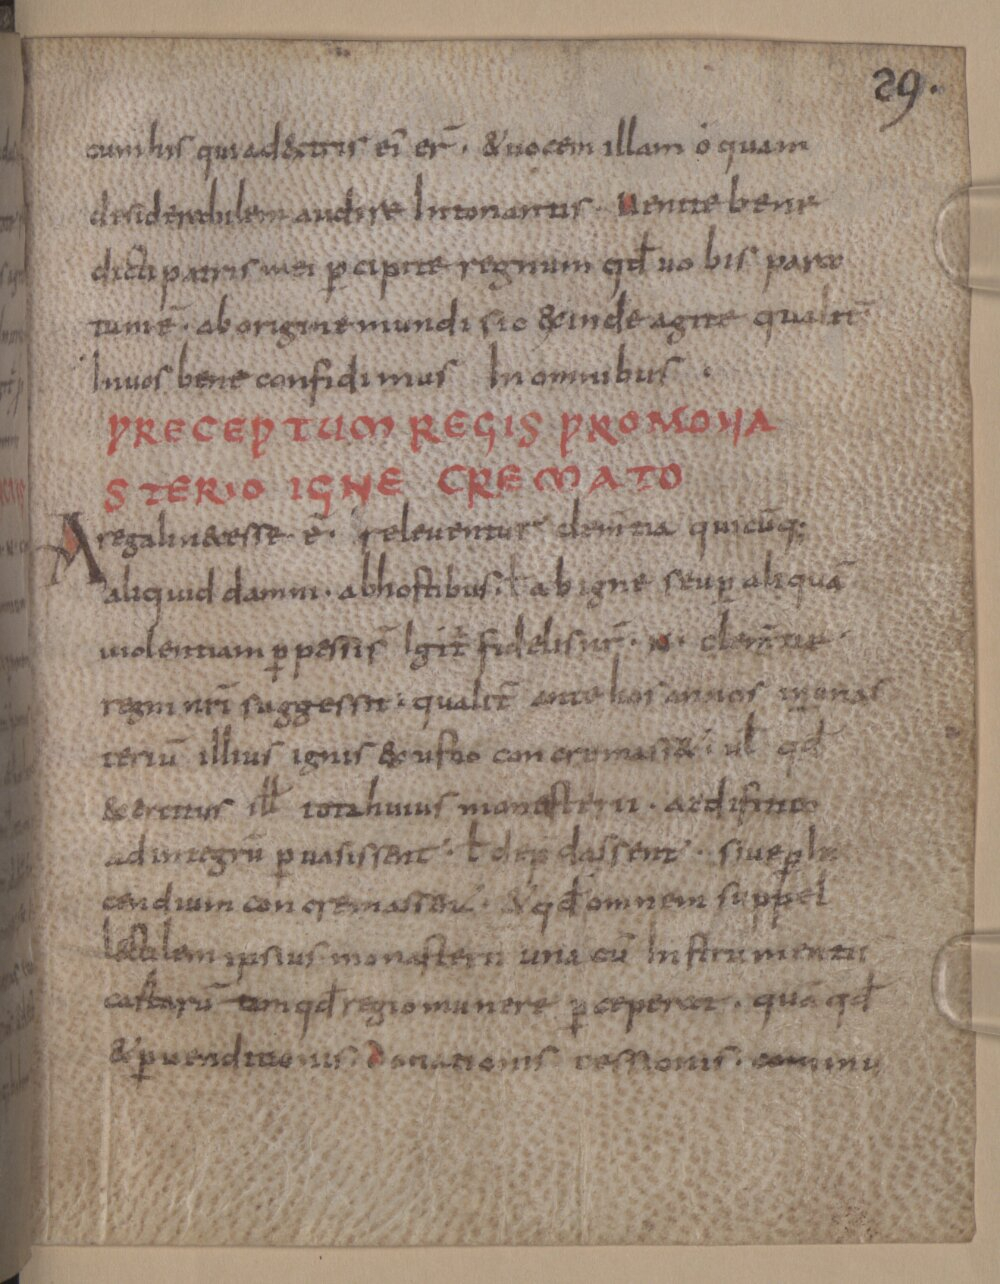 29.
cum his qui ad dextris ei er̄. & uocem illam o quam
disiderabilem audire Intonantis. Uenite bene
dicti patris mei ꝑcipite regnum qđ uo bis para
tum ē. ab origine mundi sic & inde agite qualit̄
In uos bene confidimus In omnibus.
PRECEPTUM REGIS PRO MONA
STERIO IGNE CREMATO
A regalin& esse ē. releuentur clem̄tia quicūq;
aliquid damni. ab hostibus. ł ab igne seu ꝑ aliquā
uiolentiam ꝑpessis̄ Igit̄ fidelis ur̄. N. clem̄tie
regni nr̄i suggessit. qualit̄ ante hos annos monas
teriū illius ignis & usuo concremass&. uł qđ
& ercitus ill tota huius monasterii. aedificia
ad integrū ꝑuasissent. ł dep̄dassent. siue ꝑ In
cendium concremassent. & qđ omnem suppel
lectilem ipsius monasterii una cū Instrumentis
cartarū tam qđ regio munere ꝑceperat. quā qđ
& ꝑ uenditionis. donationis cessionis. commu